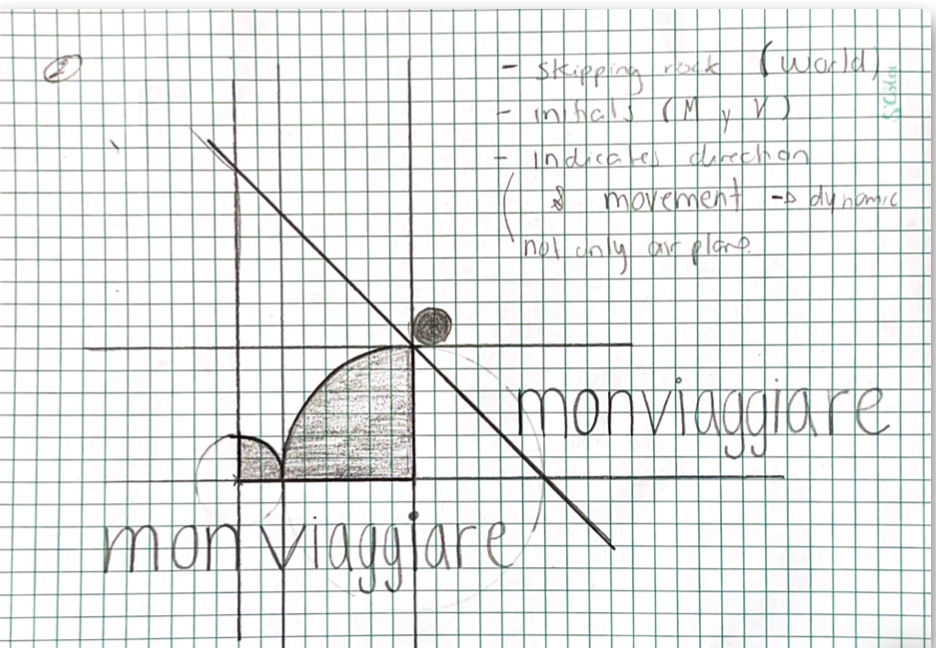 2
- skipping rock (world)
- initials (M y V)
- indicates direction
& movement -> dynamic
not only air plane.
monviaggiare
monviaggiare